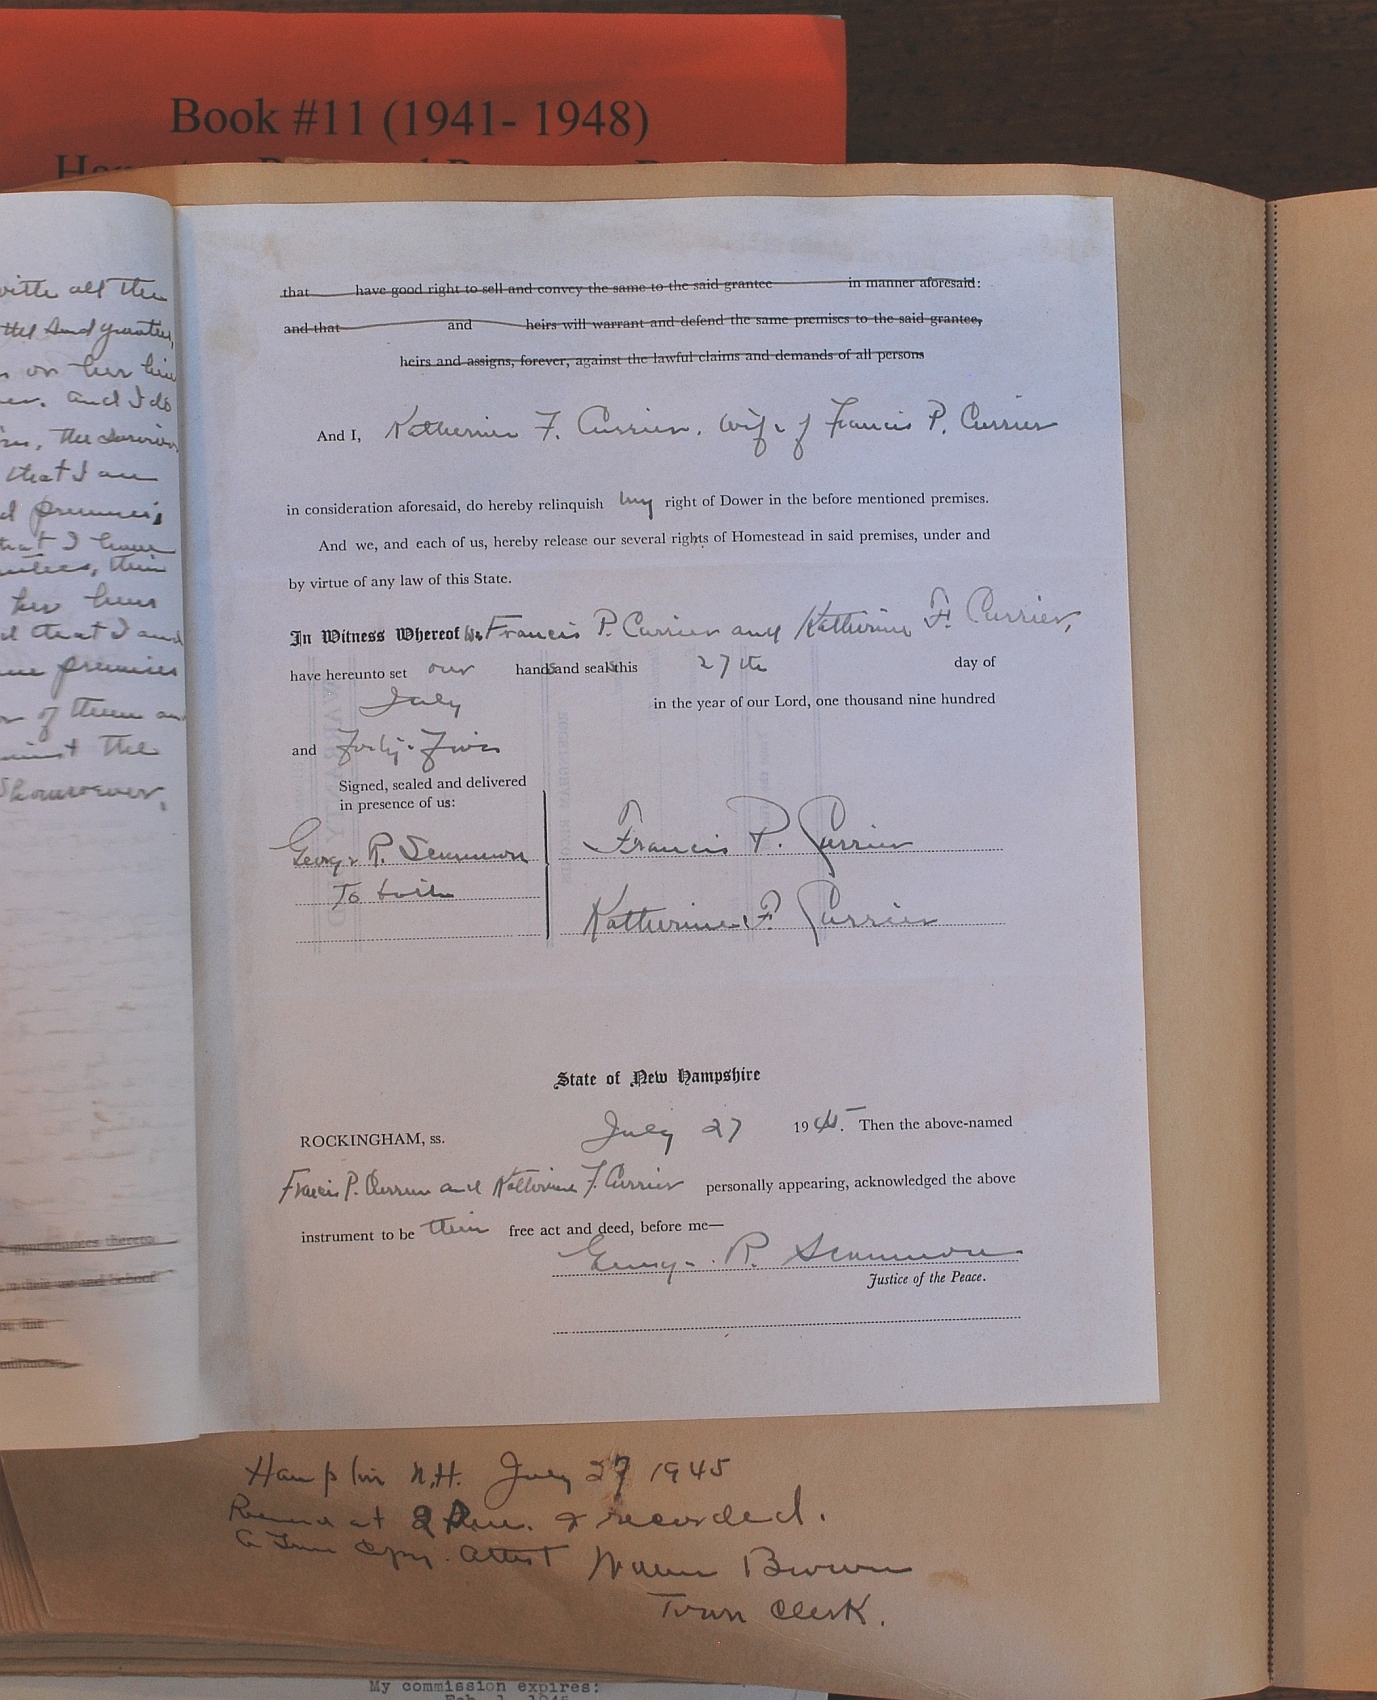 Book #11 (1941- 1948)
with all the
and grantees,
on her
and I do
that I am
premises;
that I have
her heirs
that I and
premises
of them and
the
that have good right to sell and convey the same to the said grantee in manner aforesaid:
and that and heirs will warrant and defend the same premises to the said grantee,
heirs and assigns, forever, against the lawful claims and demands of all persons
And I, Katherine F. Currier, wife of Francis P. Currier
in consideration aforesaid, do hereby relinquish my right of Dower in the before mentioned premises.
And we, and each of us, hereby release our several rights of Homestead in said premises, under and
by virtue of any law of this State.
In Witness Whereof We Francis P. Currier and Katherine F. Currier,
have hereunto set our hands and seals this 27th day of
July in the year of our Lord, one thousand nine hundred
and Forty-Five
Signed, sealed and delivered
in presence of us:
George R. Scammon Francis P. Currier
To both
Katherine F. Currier
State of New Hampshire
ROCKINGHAM, ss. July 27 1945. Then the above-named
Francis P. Currier and Katherine F. Currier personally appearing, acknowledged the above
instrument to be their free act and deed, before me—
George R. Scammon
Justice of the Peace.
Hampton N.H. July 27 1945
at 2 & recorded.
A True Copy. Attest Brown
Town Clerk.
My commission expires: